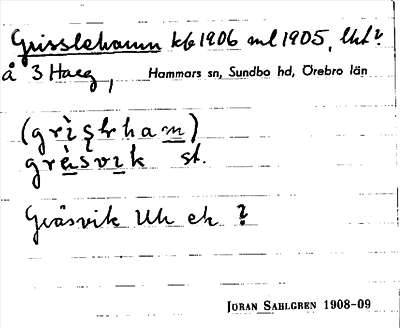 Grisslehamn kb 1906 ml 1905, Uh?
å 3 Haeg, Hammars sn, Sundbo hd, Örebro län
(grìslrham)
gräsvik st.
Gräsvik Uh ek ?
JÖRAN SAHLGREN 1908-09